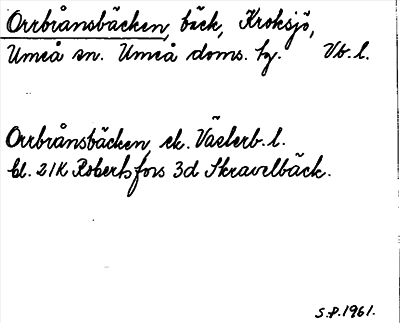 Orrbrånsbäcken, bäck, Kroksjö,
Umeå sn. Umeå doms. hg. Vb. l.
Orrbrånsbäcken, ek. Västerb. l.
bl. 21K Robertsfors 3d Skravelbäck.
S.P. 1961.